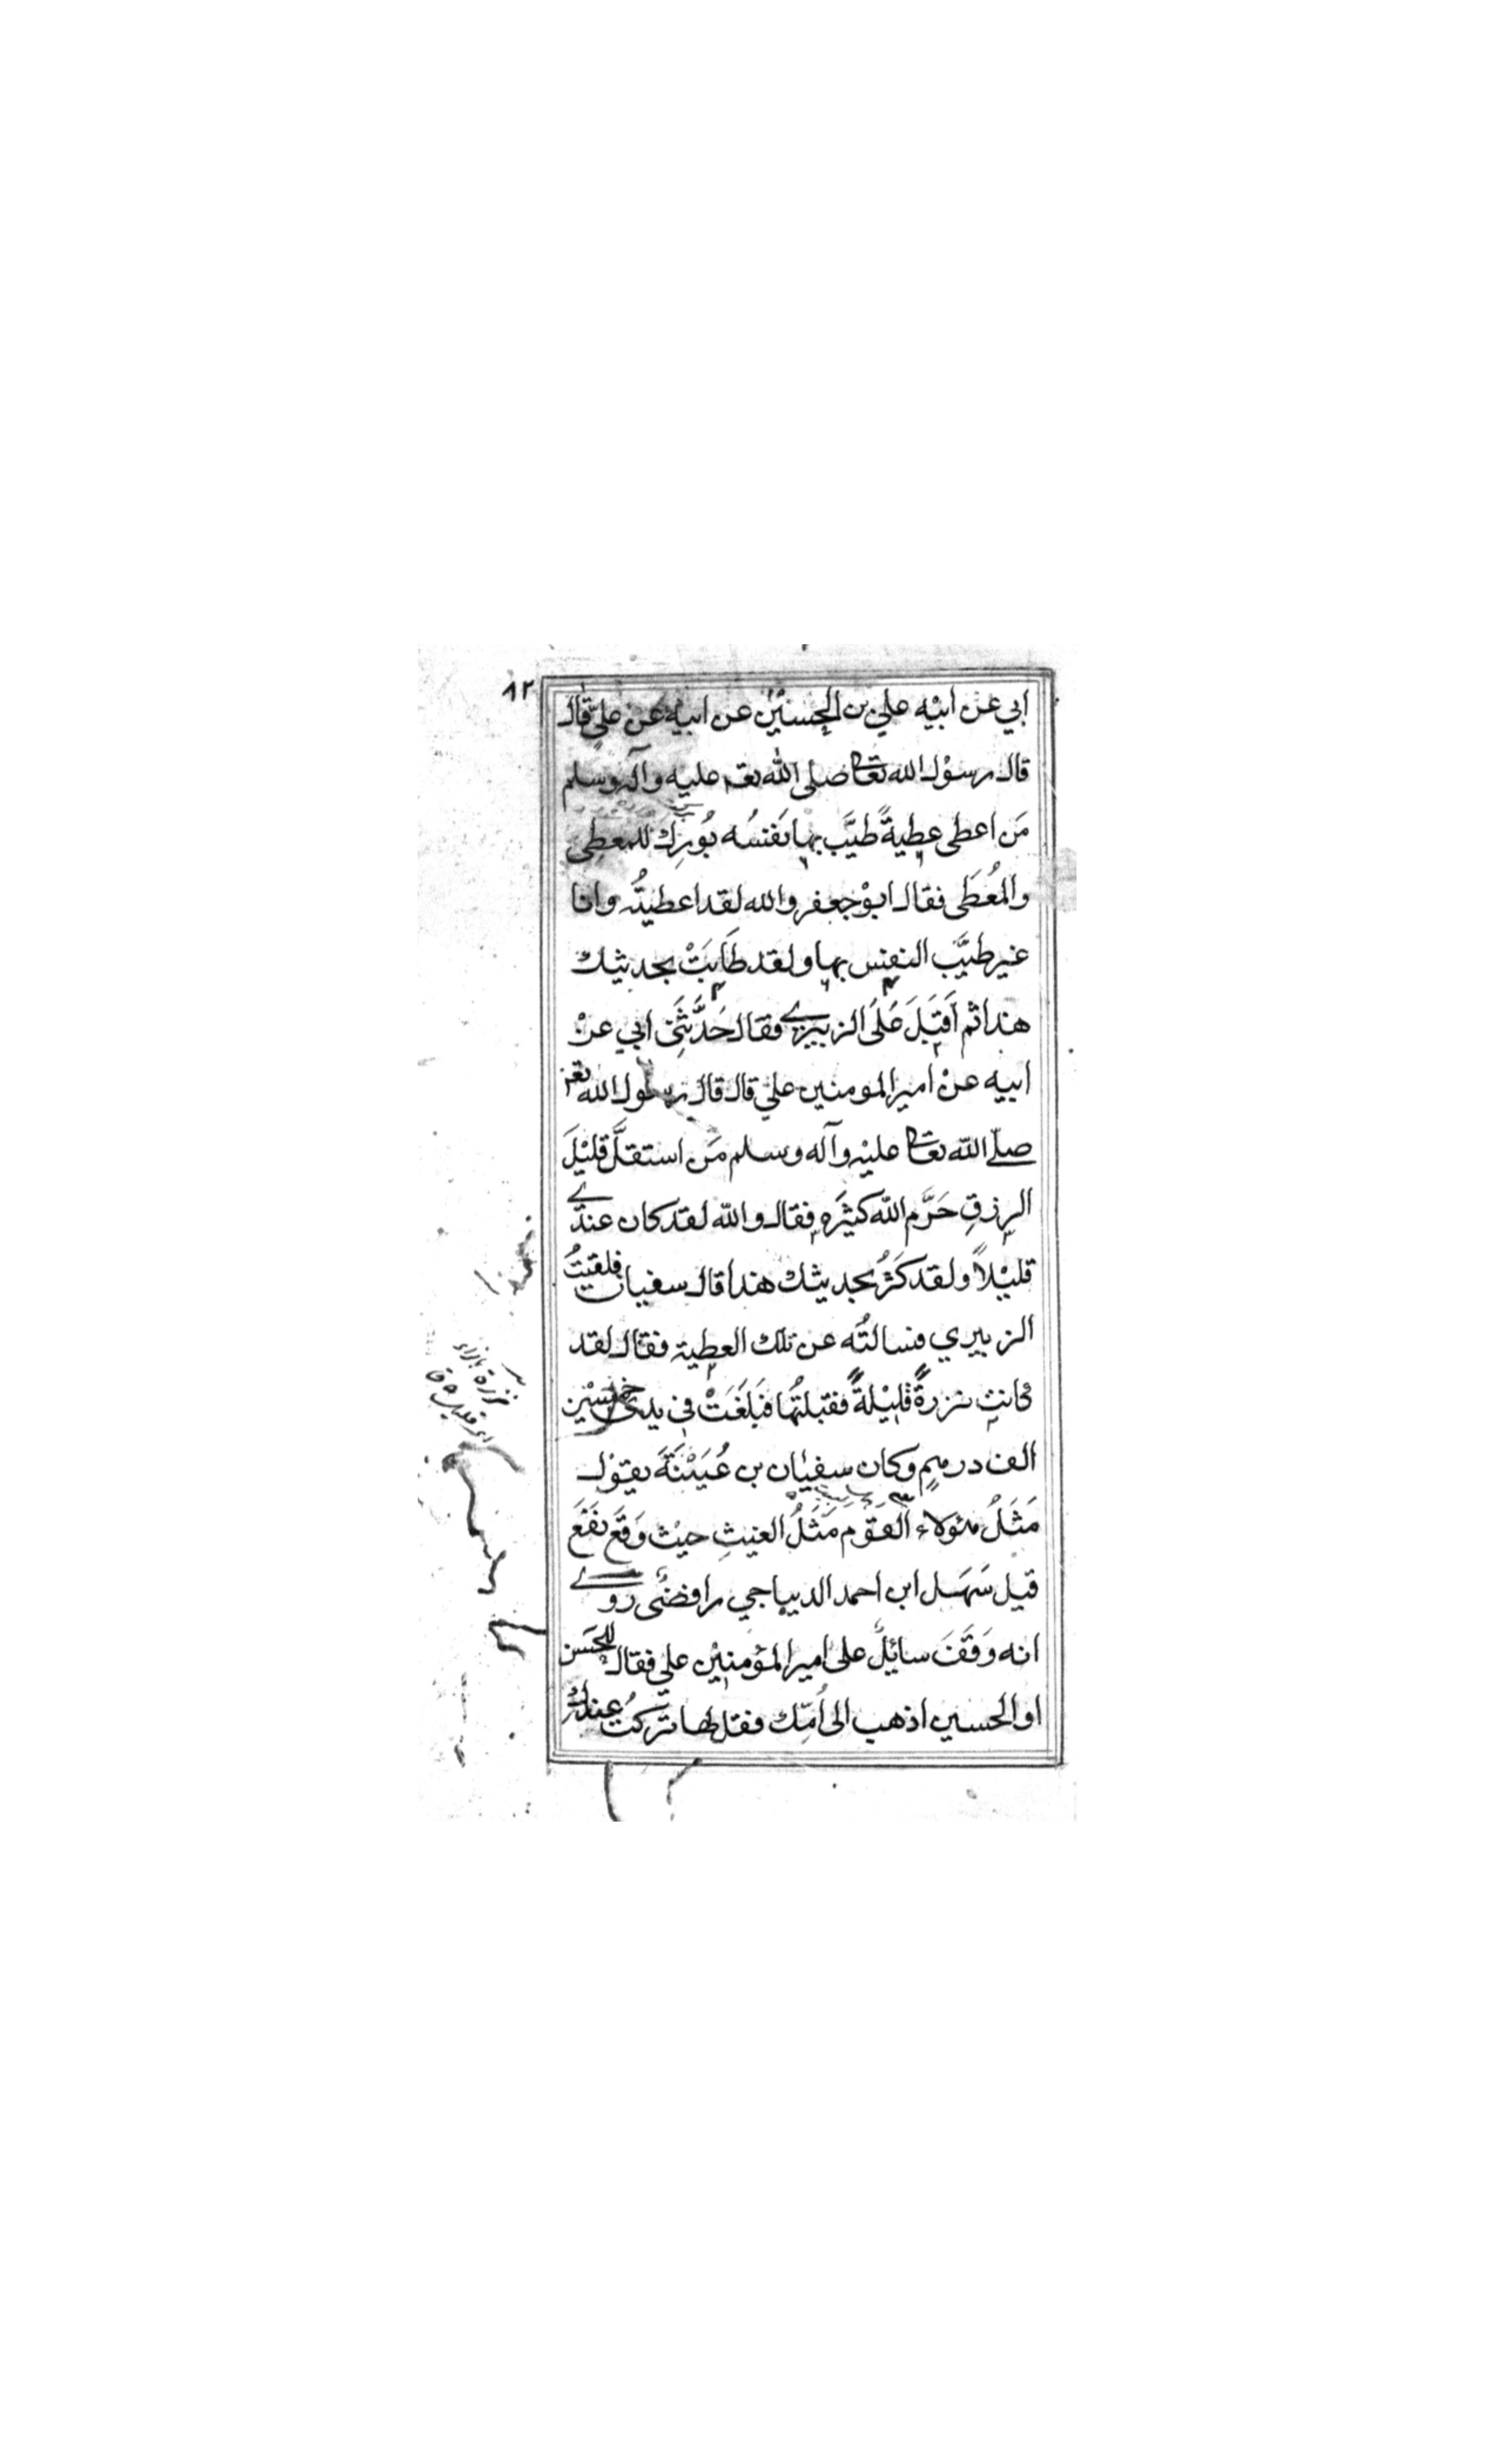 ٨٢
ابي عن ابيْه علي بن الحسيْن عن ابيه عن عليّ قال
قال رسوْل الله تعالى صلى الله تعم عليه وآله وسلم
مَن اعطى عطيةً طيَّب بها نفسُه بُورِك للمعطِى
والمُعطَى فقال ابوْ جعفر والله لقد اعطيتُه وانا
غير طيَّب النفس بها ولقد طَابَتْ بحديثك
هذا ثم اَقبَلَ عَلَى الزبيرے فقال حَدَّثَنِى ابي عنْ
ابيه عنْ امير المومنين علي قال قال رسول الله تعم
صلے الله تعالى عليْه وآله وسلم مَن استقلَّ قليْلَ
الرزقِ حَرَّم الله كثيْرَه فقال والله لقد كان عندے
قليْلاً ولقد كثُر بحديثك هذا قال سفيان فلقيتُ
الزبيري فسالتُه عن تلك العطية فقال لقد
كانت نزرةً قليْلةً فقبلتُها فبَلَغَتْ في يدى خمسيْن
الف درهمٍ وكان سفيٰان بن عُيَيْنَةَ يقوْل
مَثَلُ هئولاء القوْم مَثَلُ الغيثِ حيْث وَقَعَ نَفَعَ
قيل سَهَل ابن احمد الديباجي رافضى روے
انه وَقَفَ سائِلٌ على امير المؤمنيْن علي فقال للحسَن
او الحسين اذهب الى اُمّك فقل لها تركتُ عندك
نزرة بازاء